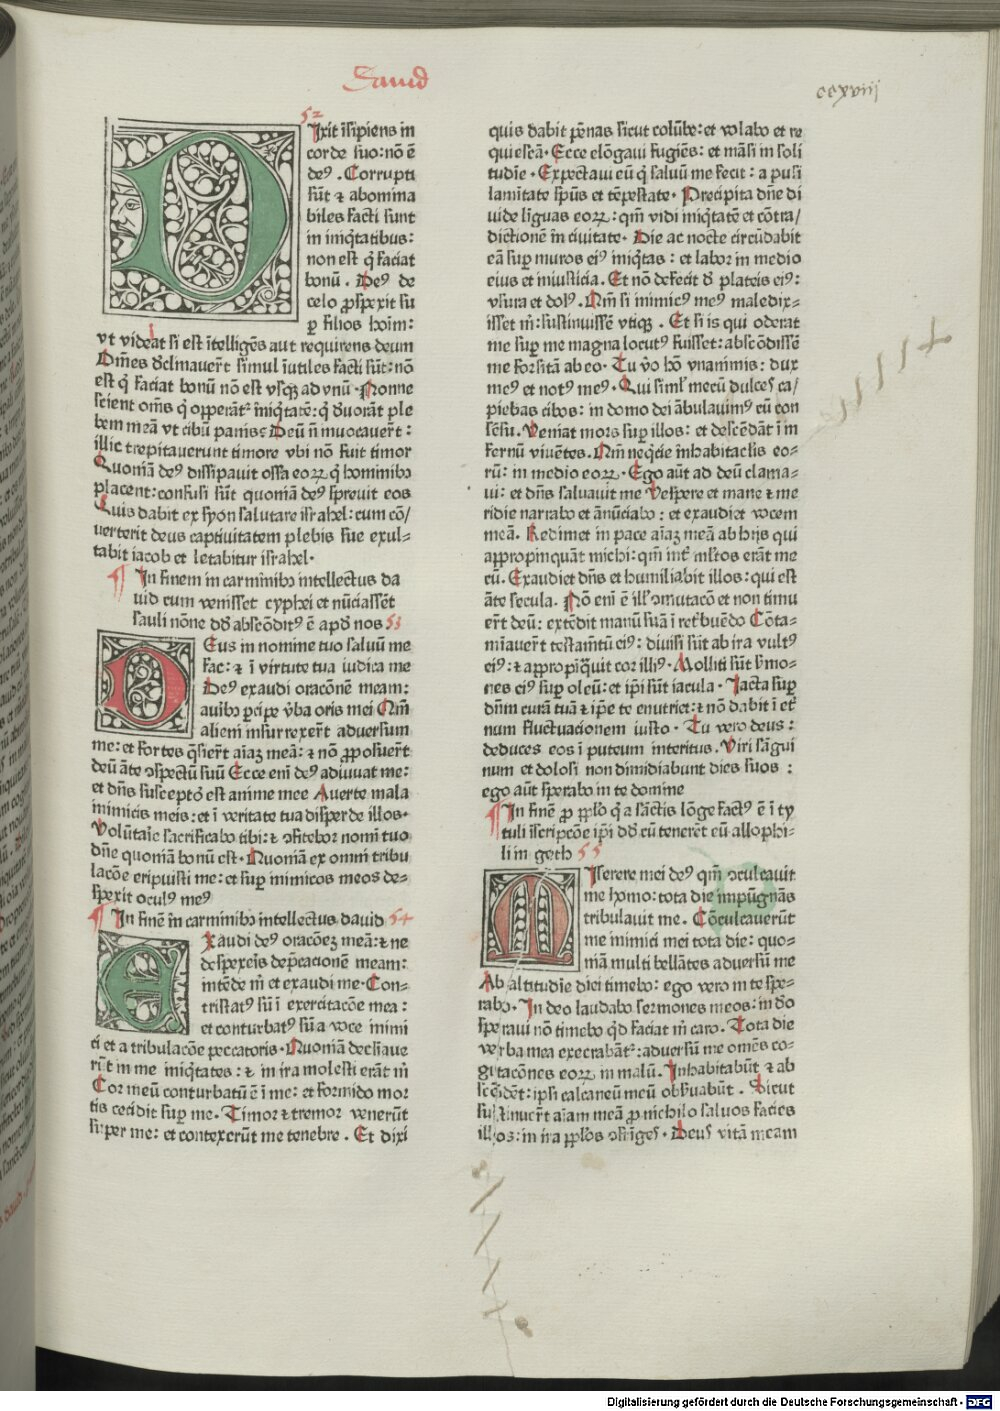 Dauid
ccxviij
52
Dixit īsipiens in
corde suo: nō ē
deꝰ. Corrupti
sūt ⁊ abomina
biles facti sunt
in iniq̇tatibus:
non est q̇ faciat
bonū. Deꝰ de
celo ꝓspexit su
ꝑ filios hoīm:
vt videat si est ītelligēs aut requirens deum
Om̄es d̕clinauer̄t simul īutiles facti sūt: nō
est q̇ faciat bonū nō est vsq̨ ad vnū. Nonne
scient om̄s q̇ opperāt᷑ īniq̇tatē: q̇ d̕uorāt ple
bem meā vt cibū panis; Deū n̄ inuocauer̄t:
illic trepitauerunt timore vbi nō fuit timor
Quoniā deꝰ dissipauit ossa eoꝝ q̇ hominibꝰ
placent: confusi sūt quoniā deꝰ spreuit eos
Quis dabit ex syon salutare israhel: cum cō/
uerterit deus captiuitatem plebis sue exul-
tabit iacob et letabitur israhel.
¶ In finem in carminibꝰ intellectus da
uid cum venisset cyphei et nūciassēt
sauli nōne dd̄ abscōditꝰ ē apd̕ nos 53
Deus in nomine tuo saluū me
fac: ⁊ ī virtute tua iudica me
Deꝰ exaudi oracōnē meam:
auribꝰ ꝑcipe v̕ba oris mei Qm̄
alieni insurrexer̄t aduersum
me: et fortes q̄sier̄t aīaꝫ meā: ⁊ nō ꝓposuer̄t
deū āte ↄspectū suū Ecce eni deꝰ adiuuat me:
et dn̄s susceptor̕ est anime mee Auerte mala
inimicis meis: et ī veritate tua disperde illos.
Volūtarie sacrificabo tibi: ⁊ ↄfitebor nomī tuo
dn̄e quoniā bonū est. Quoniā ex omni tribu
lacōe eripuisti me: et suꝑ inimicos meos de-
spexit oculꝰ meꝰ
¶ In finē in carminibꝰ intellectus dauid 54
Exaudi deꝰ oracōeꝫ meā: ⁊ ne
despexeris dep̄cacionē meam:
intēde m̄ et exaudi me. Con-
tristatꝰ sū ī exercitacōe mea:
et conturbatꝰ sū a voce inimi
ci et a tribulacōe peccatoris. Quoniā declīaue
rūt in me iniq̇tates: ⁊ in ira molesti erāt m̄
Cor meū conturbatū ē ī me: et formido mor
tis cecidit suꝑ me. Timor ⁊ tremor venerūt
super me: et contexerūt me tenebre. Et dixi
quis dabit pēnas sicut colūbe: et volabo et re
quiescā. Ecce elōgaui fugiēs: et māsi in soli
tudīe. Expectaui eū q̇ saluū me fecit: a pusi
lamitate spūs et tēpestate. Precipita dn̄e di
uide līguas eoꝝ: qm̄ vidi iniq̇tatē et cōtra/
dictionē in ciuitate. Die ac nocte circūdabit
eā suꝑ muros eiꝰ iniq̇tas: et labor in medio
eius et iniusticia. Et nō defecit d̕ plateis eiꝰ:
vsura et dolꝰ. Qm̄ si inimicꝰ meꝰ maledix-
isset m̄: sustinuissē vtiq̨. Et si is qui oderat
me suꝑ me magna locutꝰ fuisset: abscōdissē
me forsitā ab eo. Tu v̕o hō vnanimis: dux
meꝰ et notꝰ meꝰ. Qui siml̕ mecū dulces ca/
piebas cibos: in domo dei ābulauimꝰ cū con
sēsu. Veniat mors suꝑ illos: et descēdāt ī in
fernū viuētes. Qm̄ neq̇cie īn habitaclis eo-
rū: in medio eoꝝ. Ego aūt ad deū clama-
ui: et dn̄s saluauit me Vespere et mane ⁊ me
ridie narrabo et ānūciabo: et exaudiet vocem
meā. Redimet in pace aīaꝫ meā ab hijs qui
appropinquāt michi: qm̄ int̕ ml̕tos erāt me
cū. Exaudiet dn̄s et humiliabit illos: qui est
āte secula. Nō enī ē ill̕ ↄmutacō et non timu
er̄t deū: extēdit manū suā ī ret̕buēdo Cōta-
mīauer̄t testam̄tū eiꝰ: diuisi sūt ab ira vultꝰ
eiꝰ: ⁊ appropīq̄uit cor illiꝰ. Molliti sūt s̕mo-
nes eiꝰ suꝑ oleū: et ip̄i sūt iacula. Iacta suꝑ
dn̄m curā tuā ⁊ ip̄e te enutriet: ⁊ nō dabit ī et̕
num fluctuacionem iusto. Tu vero deus:
deduces eos ī puteum interitus. Viri sāgui
num et dolosi non dimidiabunt dies suos:
ego aūt sperabo in te domine
¶ In finē ꝓ ppl̕o q̇ a sāctis lōge factꝰ ē ī ty
tuli īscripcōe ip̄i dd̄ cū tenerēt eū allophi-
li in geth 55
Miserere mei deꝰ qm̄ ↄculcauit
me homo: tota die impūgnās
tribulauit me. Cōculcauerūt
me inimici mei tota die: quo-
niā multi bellātes aduersū me
Ab altitudīe diei timebo: ego vero in te spe-
rabo. In deo laudabo sermones meos: in do
speraui nō timebo qd̕ faciat m̄ caro. Tota die
verba mea execrabāt᷑: aduersū me omēs co-
gitacōnes eoꝝ in malū. Inhabitabūt ⁊ ab
scōdēt: ipsi calcaneū meū obseruabūt. Sicut
sustinuer̄t aīam meā ꝓ nichilo saluos facies
illos: in ira ppl̕os ↄfrīges. Deus vitā meam
Digitalisierung gefördert durch die Deutsche Forschungsgemeinschaft - DFG